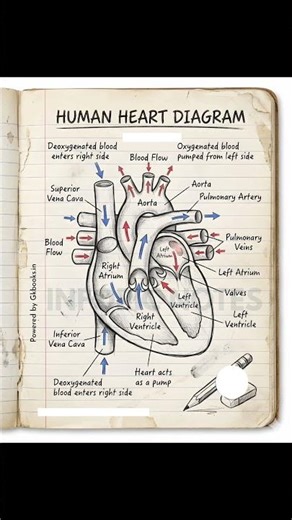 HUMAN HEART DIAGRAM
Deoxygenated blood
enters right side
Blood Flow
Oxygenated blood
pumped from left side
Superior
Vena Cava
Aorta
Aorta
Pulmonary Artery
Blood
Flow
Left
Atrium
Pulmonary
Veins
Right
Atrium
Left Atrium
Left
Ventricle
Valves
Right
Ventricle
Left
Ventricle
Inferior
Vena Cava
Heart acts
as a pump
Deoxygenated
blood enters right side
Powered by Gkbooks.in